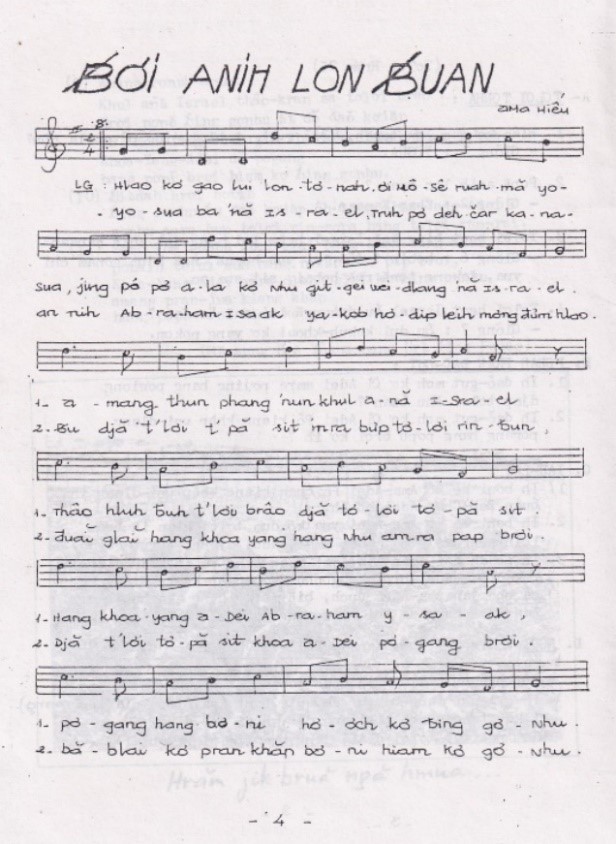 ƀơi anih lon ƀuan
ama Hiếu
LG : Hlao kơ gao lui lon tơ-nah. ơi Mô-sê ruah mă yo-
- yo-sua ba 'nă Is-ra-el, Truh pơ deh čar ka-na-
sua, jing pô pơ a-la kơ Nhu git-gei wei-dlang 'nă Is-ra-el.
an nih Ab-ra-ham Isaak ya-kob hơ-dip leih mơng đưm hlao.
1- a-mang thun phang 'nun khul a-nă I-Sra-el
2- Bu djă t'lơi t'pă sit m'ra bưp tơ-lơi rin-ƀun,
1- Thâo hluh ƀuh t'lơi brâo djă tơ-lơi tơ-pă sit.
2- đuaĭ glaĭ hang khoa yang hang Nhu amra pap brơi.
1- Hang khoa-yang a-Dei Ab-ra-ham y-sa-ak,
2- Djă t'lơi tơ-pă sit khoa a-Dei pơ-gang brơi.
1- pơ-gang hang bơ-ni hơ-ơch kơ ƀing gơ-Nhu.
2- bă-blai kơ pran khăp bơ-ni hiam kơ gơ-Nhu.
- 4 -